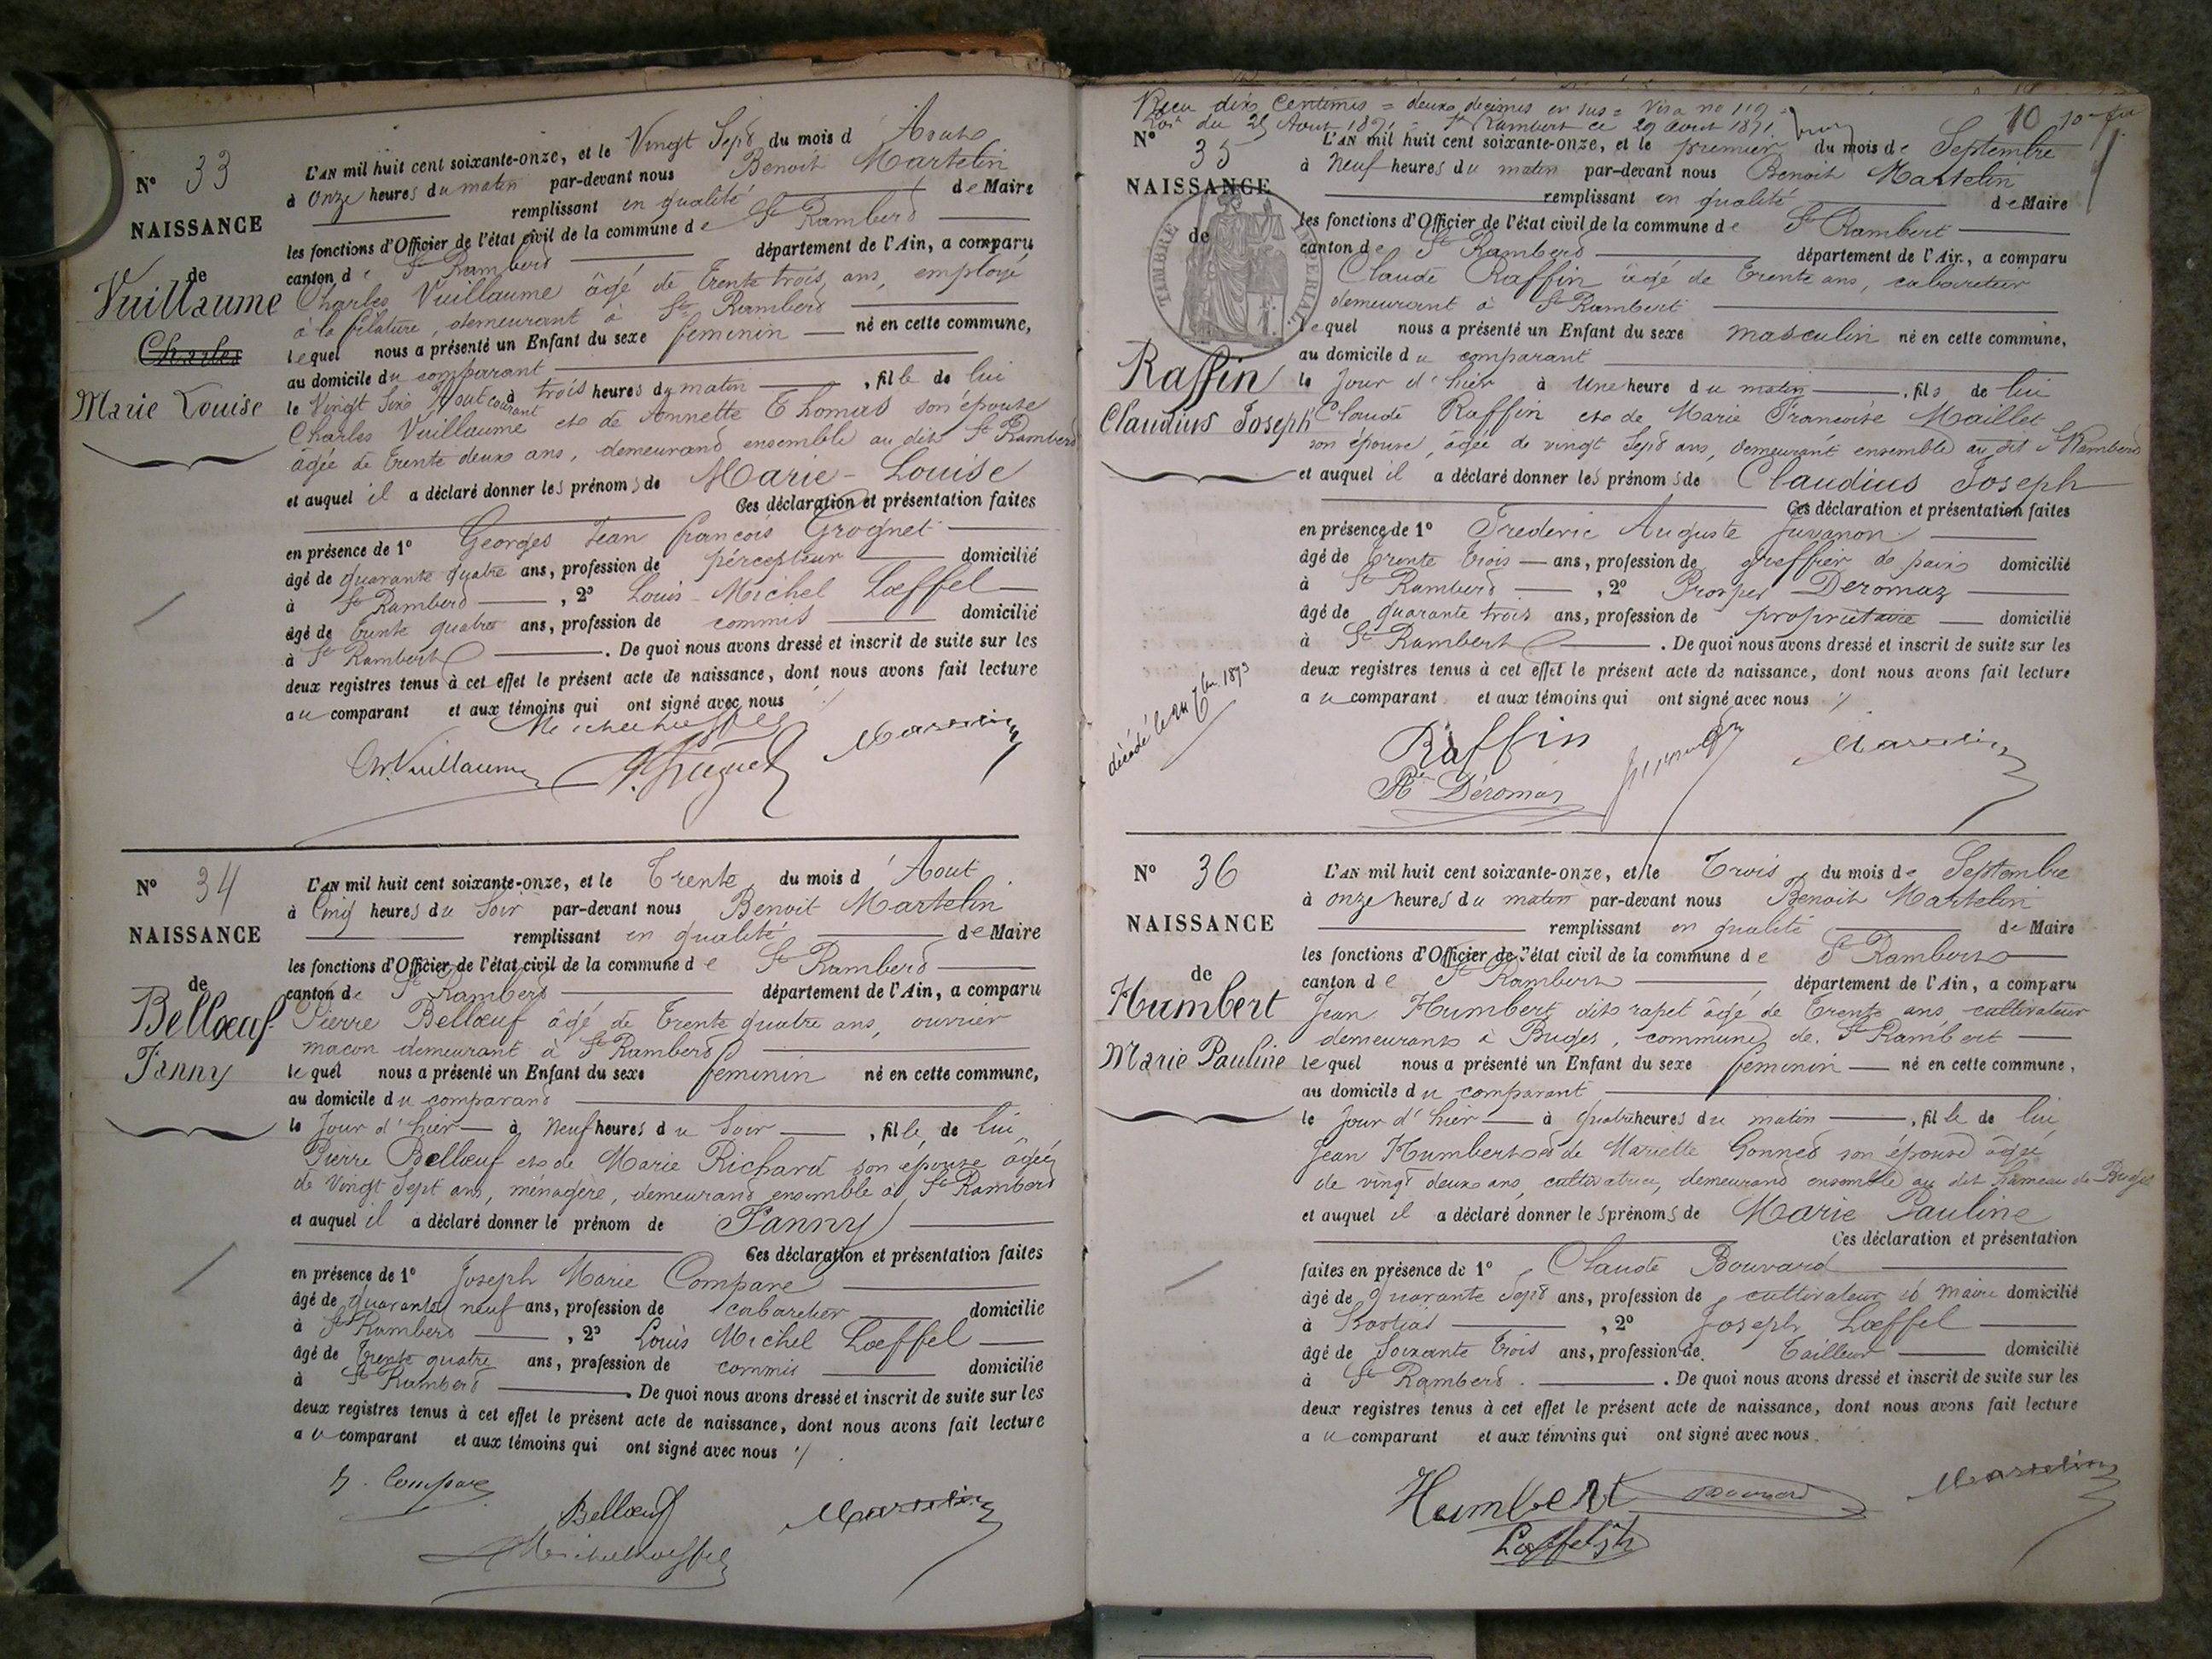 N° 33
NAISSANCE
de
Vuillaume
Charles
Marie Louise
L'AN mil huit cent soixante-onze, et le Vingt Sept du mois d'Aout
à Onze heures du matin par-devant nous Benoit Martelin
remplissant en qualité de Maire
les fonctions d'Officier de l'état civil de la commune de St Rambert
canton de St Rambert département de l'Ain, a comparu
Charles Vuillaume âgé de trente trois ans, employé
à la filature, demeurant à St Rambert
lequel nous a présenté un Enfant du sexe feminin né en cette commune,
au domicile du comparant
le Vingt Six Aout courant à trois heures du matin, fille de lui
Charles Vuillaume et de Annette Thomas son épouse
âgée de trente deux ans, demeurant ensemble au dit St Rambert
et auquel il a déclaré donner les prénoms de Marie-Louise
Ces déclaration et présentation faites
en présence de 1° Georges Jean françois Grognet
âgé de quarante quatre ans, profession de pércepteur domicilié
à St Rambert, 2° Louis Michel Lœffel
âgé de trente quatre ans, profession de commis domicilié
à St Rambert. De quoi nous avons dressé et inscrit de suite sur les
deux registres tenus à cet effet le présent acte de naissance, dont nous avons fait lecture
au comparant et aux témoins qui ont signé avec nous
Ch. Vuillaume
Martelin
N° 34
NAISSANCE
de
Bellœuf
Fanny
L'AN mil huit cent soixante-onze, et le Trente du mois d'Aout
à Cinq heures du Soir par-devant nous Benoit Martelin
remplissant en qualité de Maire
les fonctions d'Officier de l'état civil de la commune de St Rambert
canton de St Rambert département de l'Ain, a comparu
Pierre Bellœuf âgé de trente quatre ans, ouvrier
macon demeurant à St Rambert
lequel nous a présenté un Enfant du sexe feminin né en cette commune,
au domicile du comparant
le Jour d'hier à Neuf heures du Soir, fille de lui
Pierre Bellœuf et de Marie Richard son épouse âgée
de Vingt Sept ans, ménagère, demeurant ensemble à St Rambert
et auquel il a déclaré donner le prénom de Fanny
Ces déclaration et présentation faites
en présence de 1° Joseph Marie Compare
âgé de quarante neuf ans, profession de cabaretier domicilié
à St Rambert, 2° Louis Michel Lœffel
âgé de trente quatre ans, profession de commis domicilié
à St Rambert. De quoi nous avons dressé et inscrit de suite sur les
deux registres tenus à cet effet le présent acte de naissance, dont nous avons fait lecture
au comparant et aux témoins qui ont signé avec nous
Compare
Bellœuf
Martelin
Recu dix Centimes = deux decimes en sus = Visa no 119
Loi du 23 Aout 1871 St Rambert ce 29 aout 1871
10
N° 35
NAISSANCE
de
TIMBRE IMPERIAL
Raffin
Claudius Joseph
L'AN mil huit cent soixante-onze, et le premier du mois de Septembre
à Neuf heures du matin par-devant nous Benoit Martelin
remplissant en qualité de Maire
les fonctions d'Officier de l'état civil de la commune de St Rambert
canton de St Rambert département de l'Ain, a comparu
Claude Raffin âgé de trente ans, cabaretier
demeurant à St Rambert
lequel nous a présenté un Enfant du sexe masculin né en cette commune,
au domicile du comparant
le Jour d'hier à Une heure du matin, fils de lui
Claude Raffin et de Marie Francoise Maillet
son épouse, âgée de vingt Sept ans, demeurant ensemble au dit St Rambert
et auquel il a déclaré donner les prénoms de Claudius Joseph
Ces déclaration et présentation faites
en présence de 1° Frederic Auguste Juvanon
âgé de trente trois ans, profession de greffier de paix domicilié
à St Rambert, 2° Prosper Deromaz
âgé de quarante trois ans, profession de propriétaire domicilié
à St Rambert. De quoi nous avons dressé et inscrit de suite sur les
deux registres tenus à cet effet le présent acte de naissance, dont nous avons fait lecture
au comparant et aux témoins qui ont signé avec nous
décédé le 24 7bre 1873
Raffin
Martelin
Pr Déromaz
N° 36
NAISSANCE
de
Humbert
Marie Pauline
L'AN mil huit cent soixante-onze, et le Trois du mois de Septembre
à onze heures du matin par-devant nous Benoit Martelin
remplissant en qualité de Maire
les fonctions d'Officier de l'état civil de la commune de St Rambert
canton de St Rambert département de l'Ain, a comparu
Jean Humbert dit rapet âgé de trente ans, cultivateur
demeurant à Buges, commune de St Rambert
lequel nous a présenté un Enfant du sexe feminin né en cette commune,
au domicile du comparant
le Jour d'hier à quatre heures du matin, fille de lui
Jean Humbert et de Mariette Gonnet son épouse âgée
de vingt deux ans, cultivatrice, demeurant ensemble au dit hameau de Buges
et auquel il a déclaré donner les prénoms de Marie Pauline
Ces déclaration et présentation
faites en présence de 1° Claude Bouvard
âgé de quarante Sept ans, profession de cultivateur et maire domicilié
à, 2° Joseph Lœffel
âgé de Soixante trois ans, profession de Tailleur domicilié
à St Rambert. De quoi nous avons dressé et inscrit de suite sur les
deux registres tenus à cet effet le présent acte de naissance, dont nous avons fait lecture
au comparant et aux témoins qui ont signé avec nous
Humbert
Bouvard
Martelin